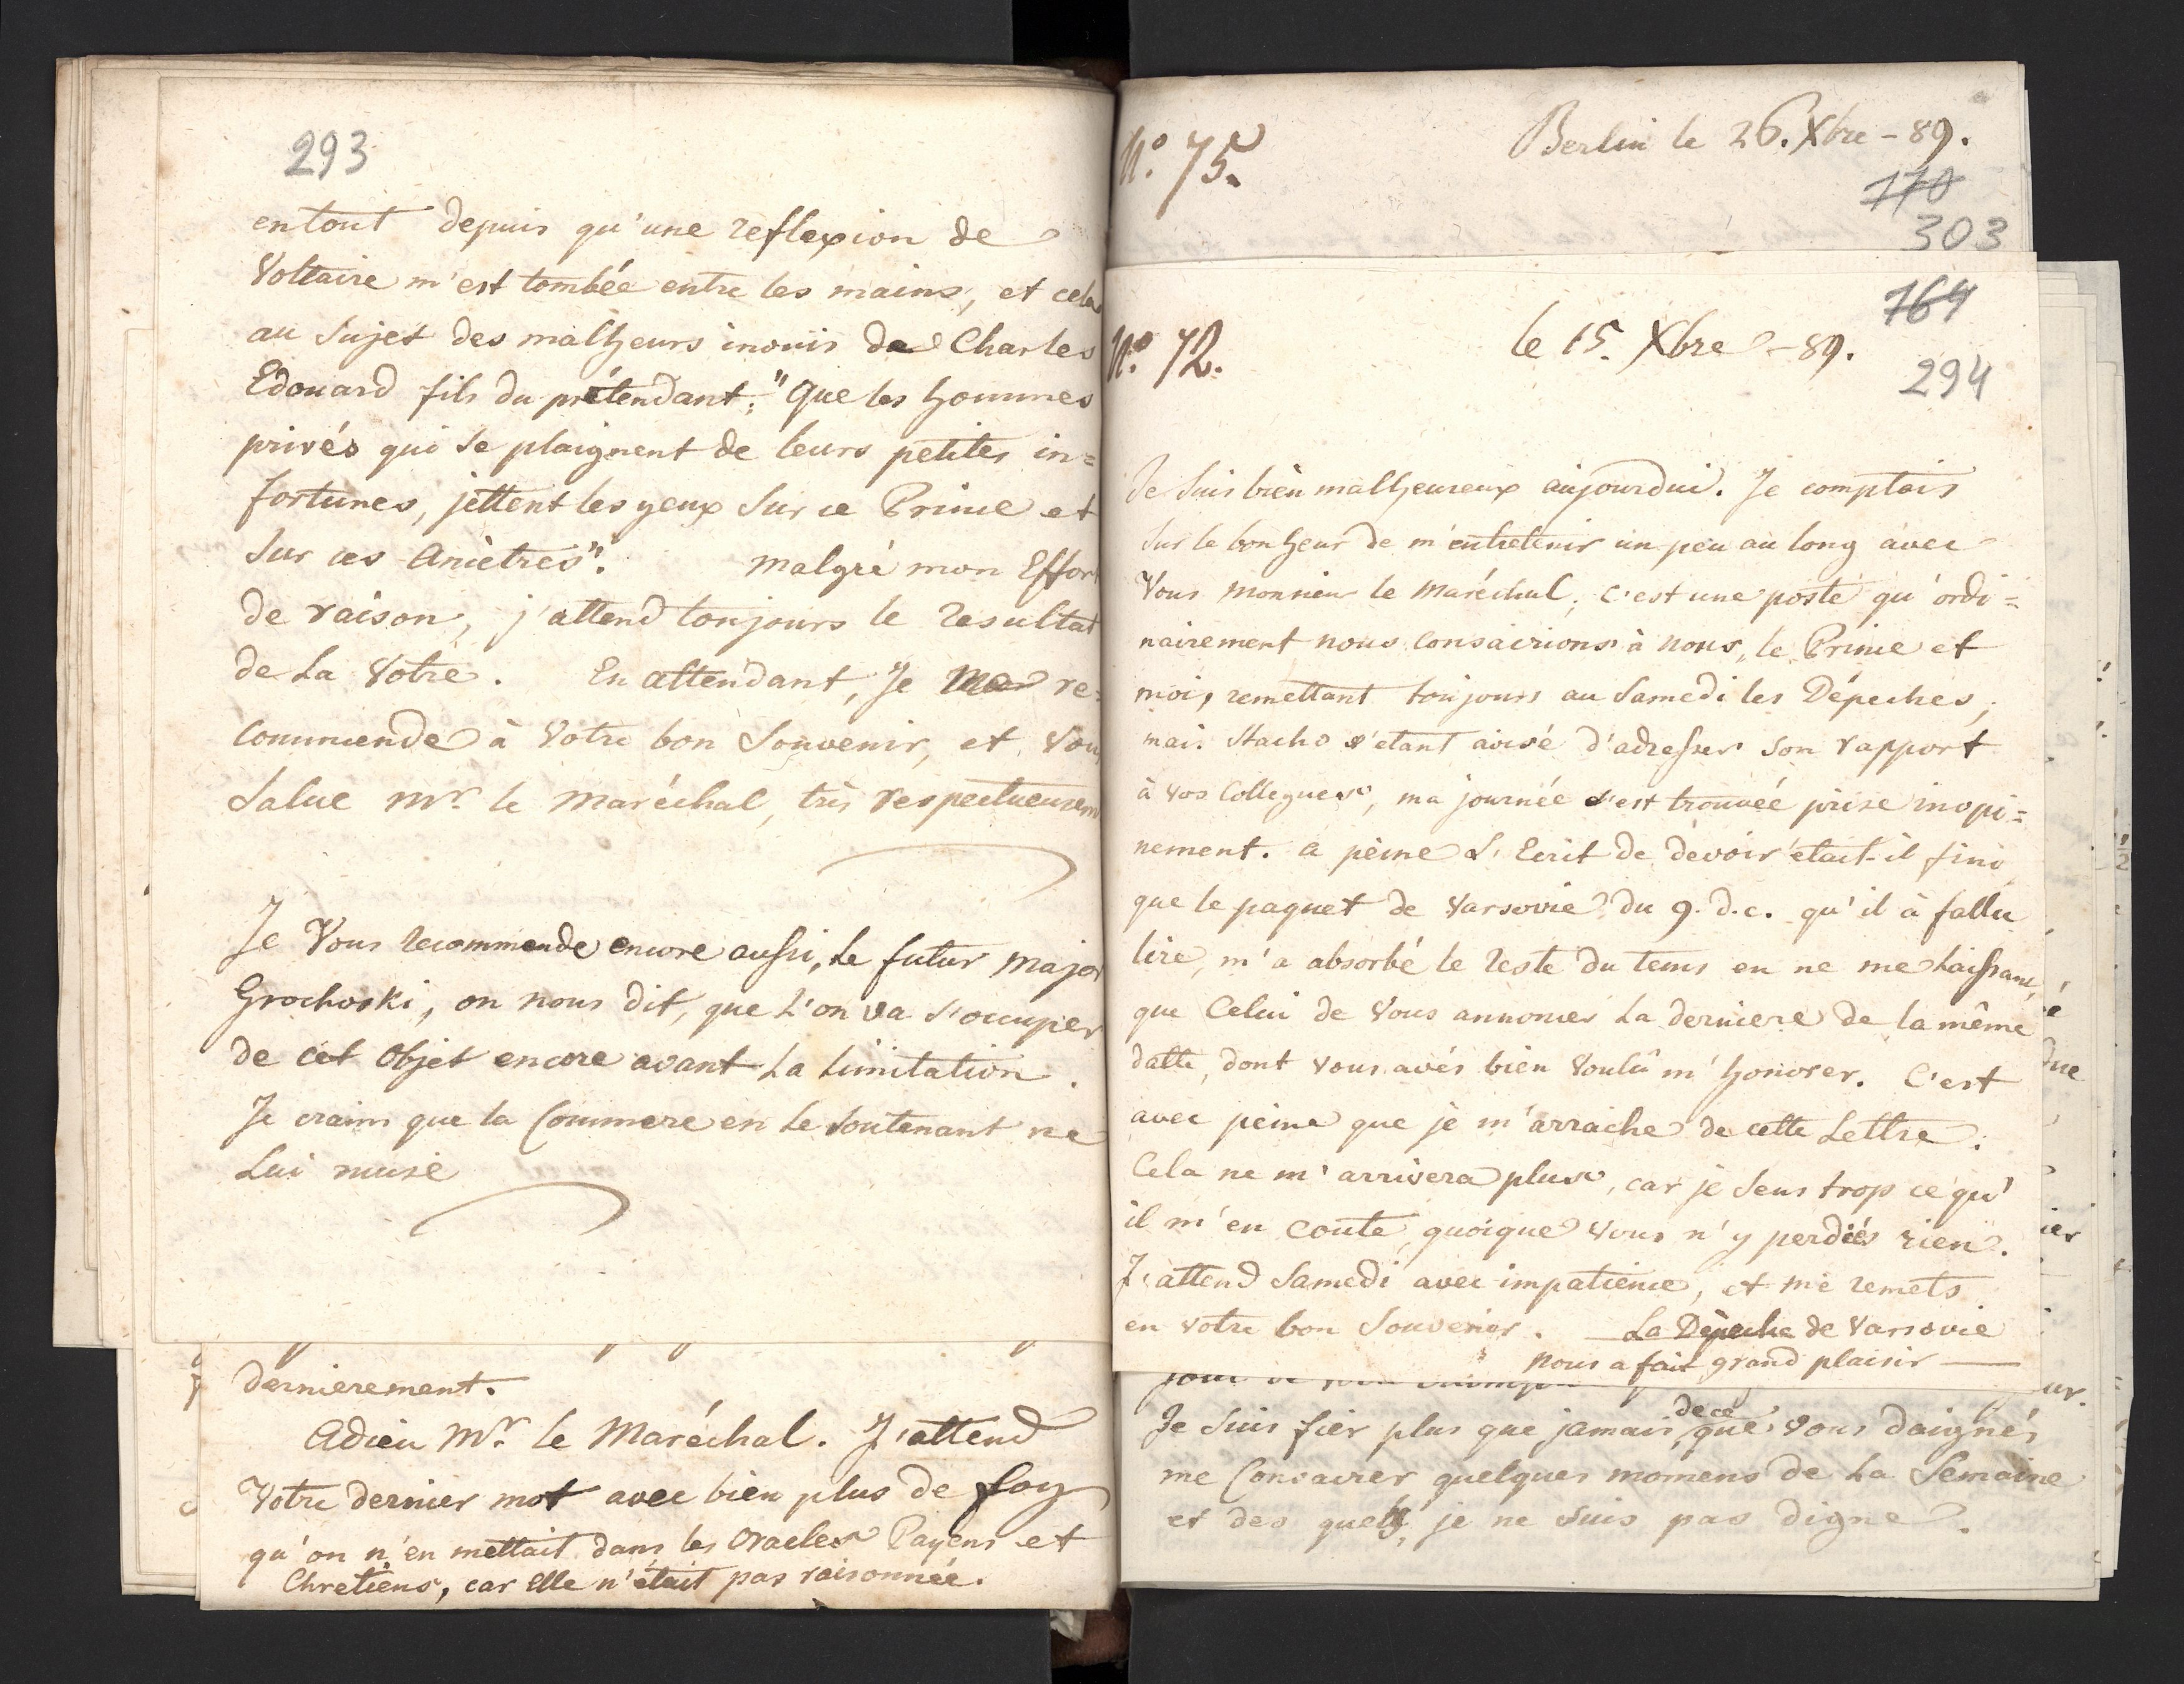 293
en tout depuis qu'une reflexion de
Voltaire m'est tombée entre les mains, et cela
au sujet des malheurs inouis de Charles
Edouard fils du prétendant: "Que les hommes
privés qui se plaignent de leurs petites in=
fortunes, jettent les yeux sur ce Prince et
sur ces Ancètres". malgré mon Effort
de raison, j'attend toujours le resultat
de la Votre. En attendant, Je me re=
commende à Votre bon Souvenir, et Vous
Salue Mr. le Maréchal, très respectueusem
Je Vous recommende encore aussi, le futur Major
Grochoski, on nous dit, que l'on va s'occuper
de cet Objet encore avant la limitation.
Je crains que la Commere en le soutenant ne
lui nuise
dernierement.
Adieu Mr. le Maréchal. J'attend
Votre dernier mot avec bien plus de foy
qu'on n'en mettait dans les Oracles Payens et
Chretiens, car Elle n'était pas raisonnée.
No. 75.
Berlin le 26. Xbre - 89.
170
303
164
No. 72.
le 15. Xbre - 89.
294
Je suis bien malheureux aujourdui. Je comptais
sur le bonheur de m'entretenir un peu au long avec
Vous monsieur le Maréchal; c'est une poste qu'ordi=
nairement nous consacrions à nous, le Prince et
moi, remettant toujours au Samedi les Dépeches;
mais Stacho s'etant avisé d'adresser son rapport
à vos Collegues, ma journée s'est trouvéé prise inopi=
nement. a peine l'Ecrit de devoir était-il fini
que le paquet de Varsovie du 9. d. c. qu'il à fallu
lire, m'a absorbé le reste du tems en ne me laissant,
que Celui de Vous annoncer la derniere de la même
datte, dont vous avés bien voulû m'honorer. C'est
avec peine que je m'arrache de cette Lettre.
Cela ne m'arrivera plus, car je sens trop ce qu'
il m'en coute, quoique Vous n'y perdiés rien.
J'attend Samedi avec impatience, et me remets
en votre bon Souvenir. La Dépeche de Varsovie
nous a fait grand plaisir
Je suis fier plus que jamais de ce que Vous daignés
me Consacrer quelques momens de la Semaine
et des quels, je ne suis pas digne.